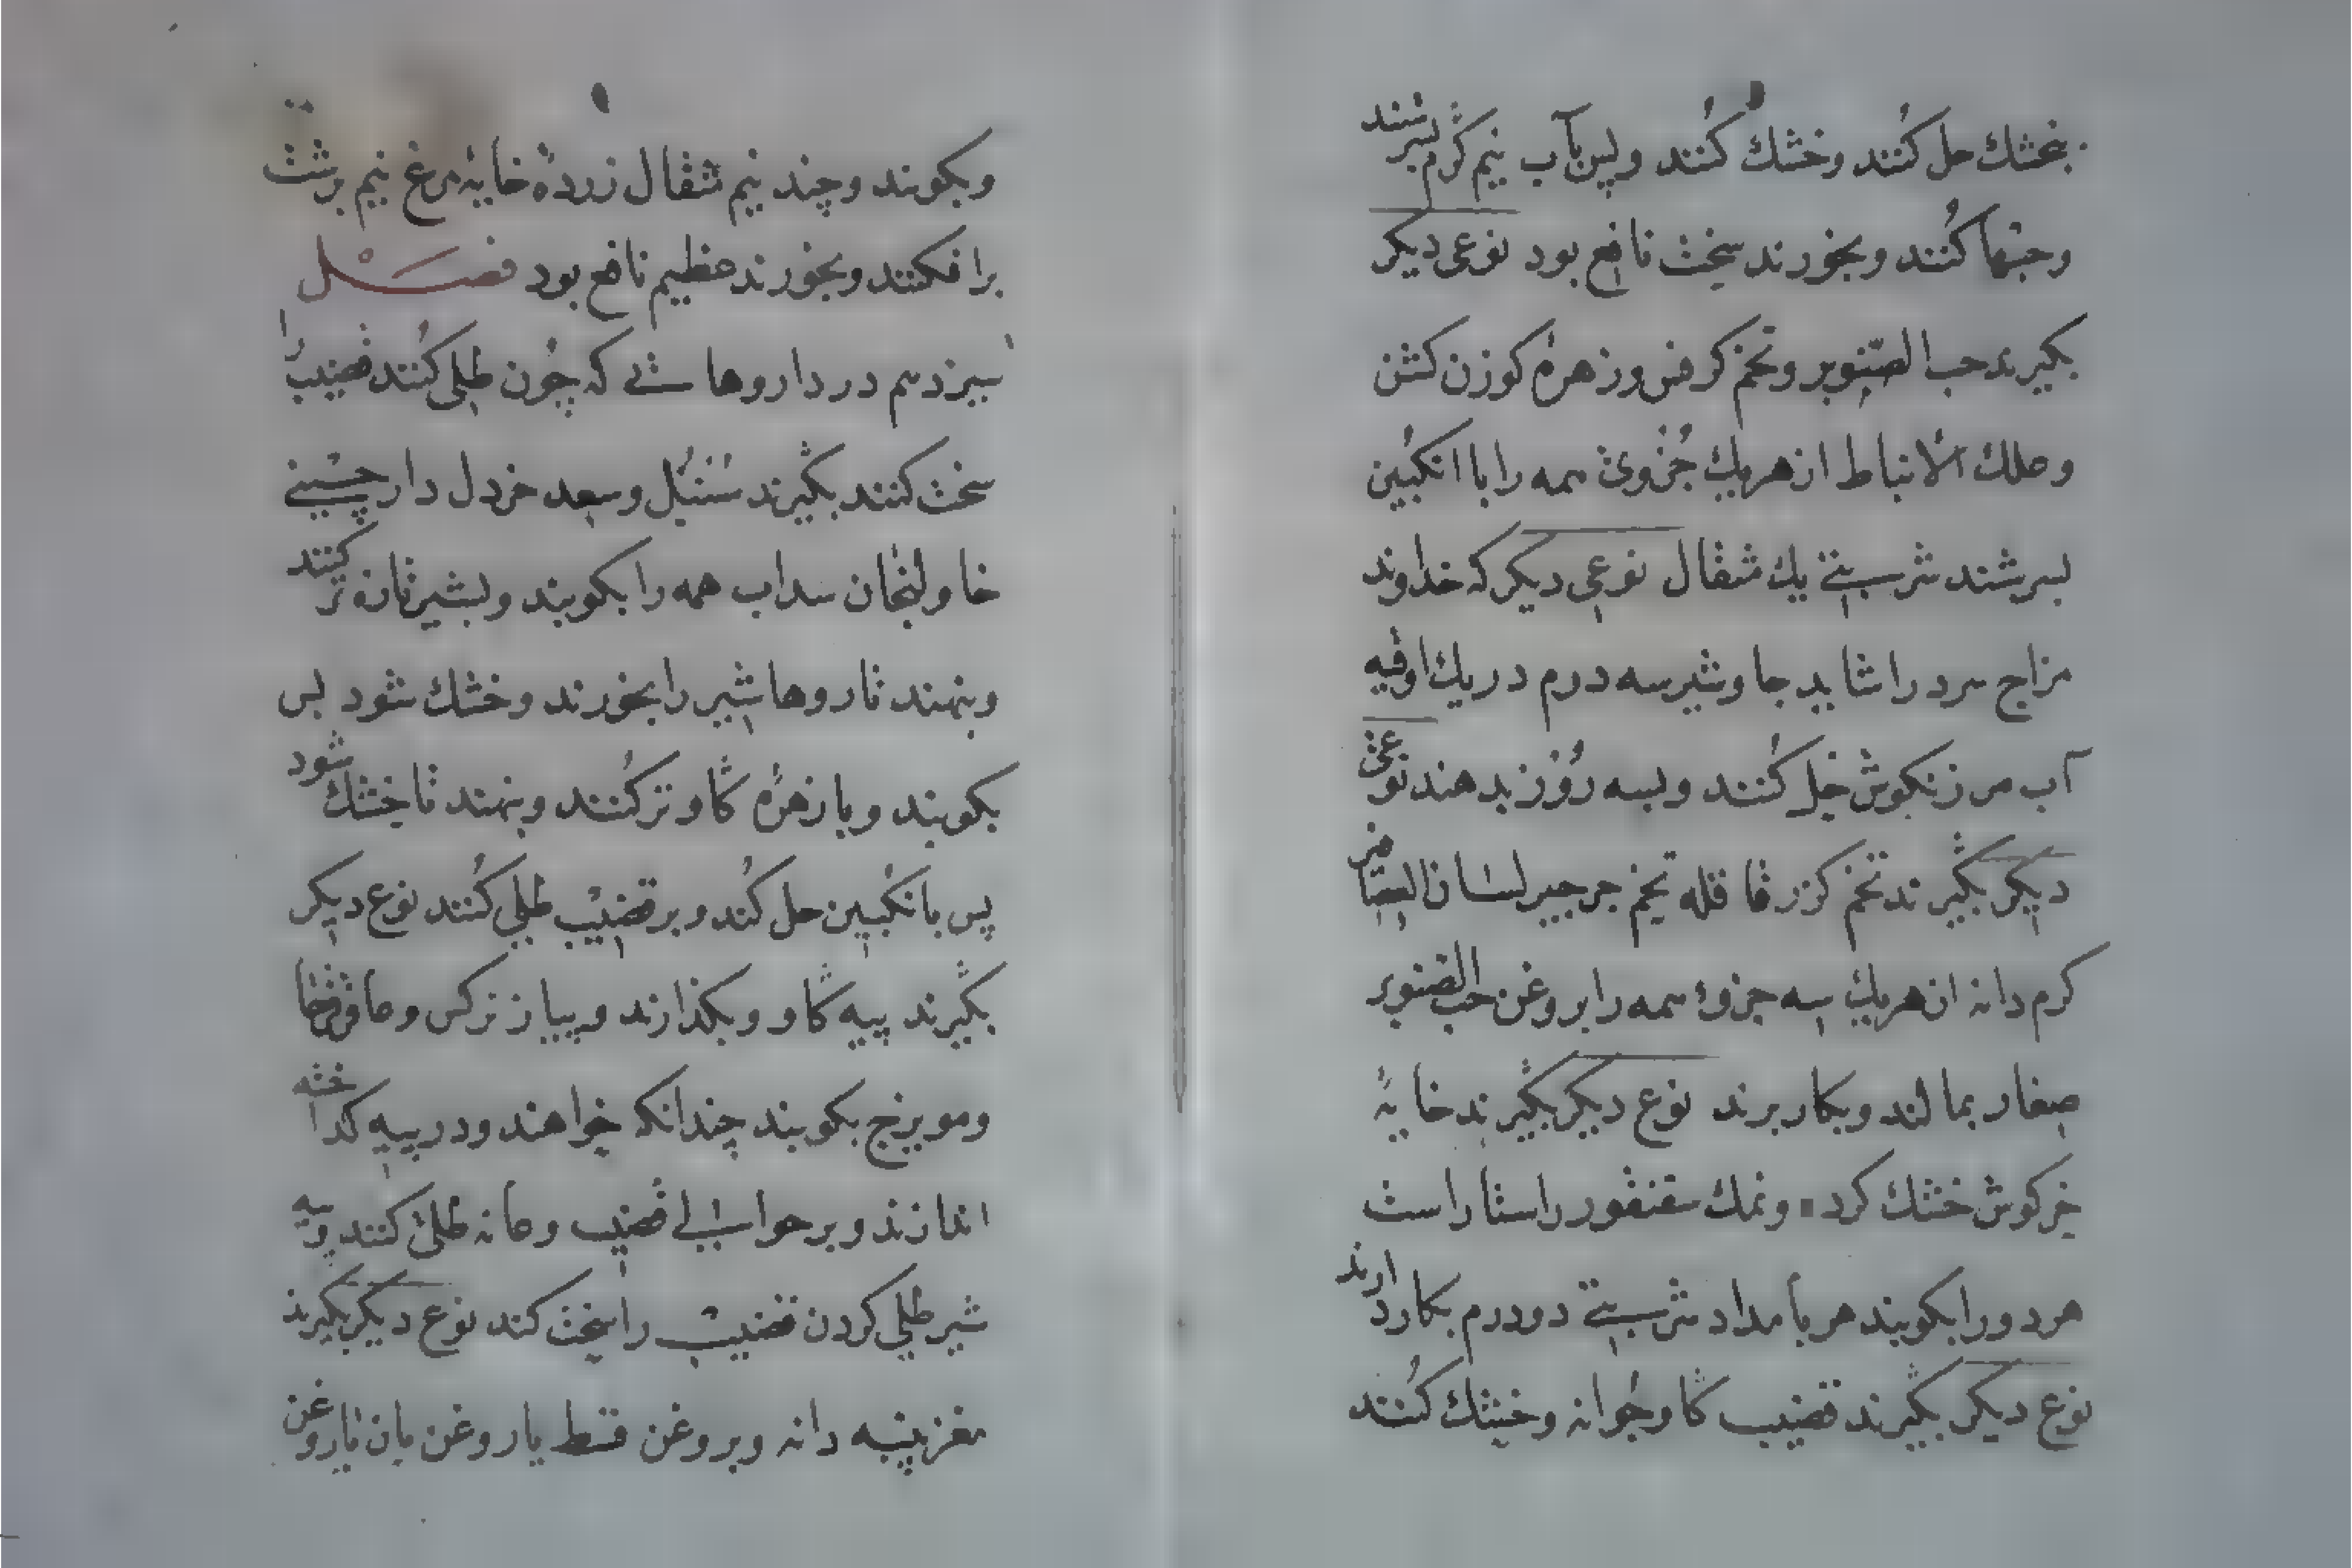 بنجشك حل كُنند وخشك كُنند وپس بآب نيم گرم بسرشند
وحبّها كُنند وبخورند سخت نافع بود نوعى ديكر
بكيرند حب الصّنوبر وتخم كرفس وزهرهٔ كوزن كشن
وعلك الانباط از هر يك جُزوى همه را با انكبين
بسرشند شربتى يك مثقال نوعى ديكر كه خداوند
مزاج سرد را شايد جاوشير سه درم در يك اوقيه
آب مرزنكوش حل كُنند وبسه روُز بدهند نوعى
ديكر بكيرند تخم كزر قاقله تخم جرجير لسان العصافير
كرم دانه از هر يك سه جزو همه را بروغن حب الصنوبر
صغار بمالند وبكار برند نوع ديكر بكيرند خايهٔ
خركوش خشك كرده ونمك سقنقور راستا راست
هر دو را بكوبند هر بامداد شربتى دو درم بكار دارند
نوع ديكر بكيرند قضيب گاو جُوانه وخشك كُنند
وبكوبند وچند نيم مثقال زردهٔ خايهٔ مرغ نيم برشت
برافكنند وبخورند عظيم نافع بود فصَــْل
سيزدهم در داروهائى كه چُون طلى كُنند قضيب را
سخت كنند بگيرند سُنبُل وسعد خردل دارچينى
خاولنجان سداب همه را بكوبند وبشير تازه تر كنند
وبنهند تا روها شير را بخورند وخشك شود پس
بكوبند وبا زهرهٔ گاو تر كُنند وبنهند تا خشك شود
پس بانكُبين حل كُند وبر قضيب طلى كُنند نوع ديكر
بگيرند پيه گاو وبكذازند وپياز نركس وعاقرقرحا
ومويزج بكوبند چندانكه خواهند ودر پيه كداخته
اندازند وبر حوالى قضيب وعانه طلى كنند وپيه
شير طلى كردن قضيب را سخت كند نوع ديكر بكيرند
مغز پنبه دانه وبروغن قسط يا روغن بان يا روغن